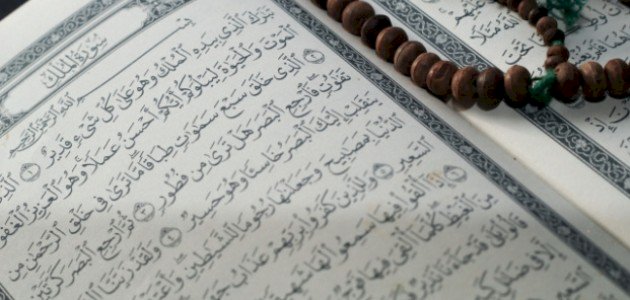 سُورَةُ المُلْكِ
بِسْمِ ٱللَّهِ ٱلرَّحْمَٰنِ ٱلرَّحِيمِ
تَبَٰرَكَ ٱلَّذِي بِيَدِهِ ٱلْمُلْكُ وَهُوَ عَلَىٰ كُلِّ شَيْءٍ قَدِيرٌ ١
ٱلْمَوْتَ وَٱلْحَيَوٰةَ لِيَبْلُوَكُمْ أَيُّكُمْ أَحْسَنُ عَمَلًا وَهُوَ ٱلْعَزِيزُ ٱلْغَفُورُ
ٱلَّذِي خَلَقَ سَبْعَ سَمَٰوَٰتٍ طِبَاقًا مَّا تَرَىٰ فِي خَلْقِ ٱلرَّحْمَٰنِ مِن
تَفَٰوُتٍ فَٱرْجِعِ ٱلْبَصَرَ هَلْ تَرَىٰ مِن فُطُورٍ ٣ ثُمَّ ٱرْجِعِ ٱلْبَصَرَ كَرَّتَيْنِ
يَنقَلِبْ إِلَيْكَ ٱلْبَصَرُ خَاسِئًا وَهُوَ حَسِيرٌ ٤ وَلَقَدْ زَيَّنَّا
ٱلدُّنْيَا بِمَصَٰبِيحَ وَجَعَلْنَٰهَا رُجُومًا لِّلشَّيَٰطِينِ
ٱلسَّعِيرِ ٥ وَلِلَّذِينَ كَفَرُوا۟ بِرَبِّهِمْ عَذَابُ
إِذَآ أُلْقُوا۟ فِيهَا سَمِعُوا۟ لَهَا شَهِيقًا
مِنَ ٱلْغَيْظِ كُلَّمَآ أُلْقِيَ فِيهَا
قَالُوا۟ بَلَىٰ قَدْ جَآءَنَا نَذِيرٌ
إِلَّا فِي ضَلَٰلٍ